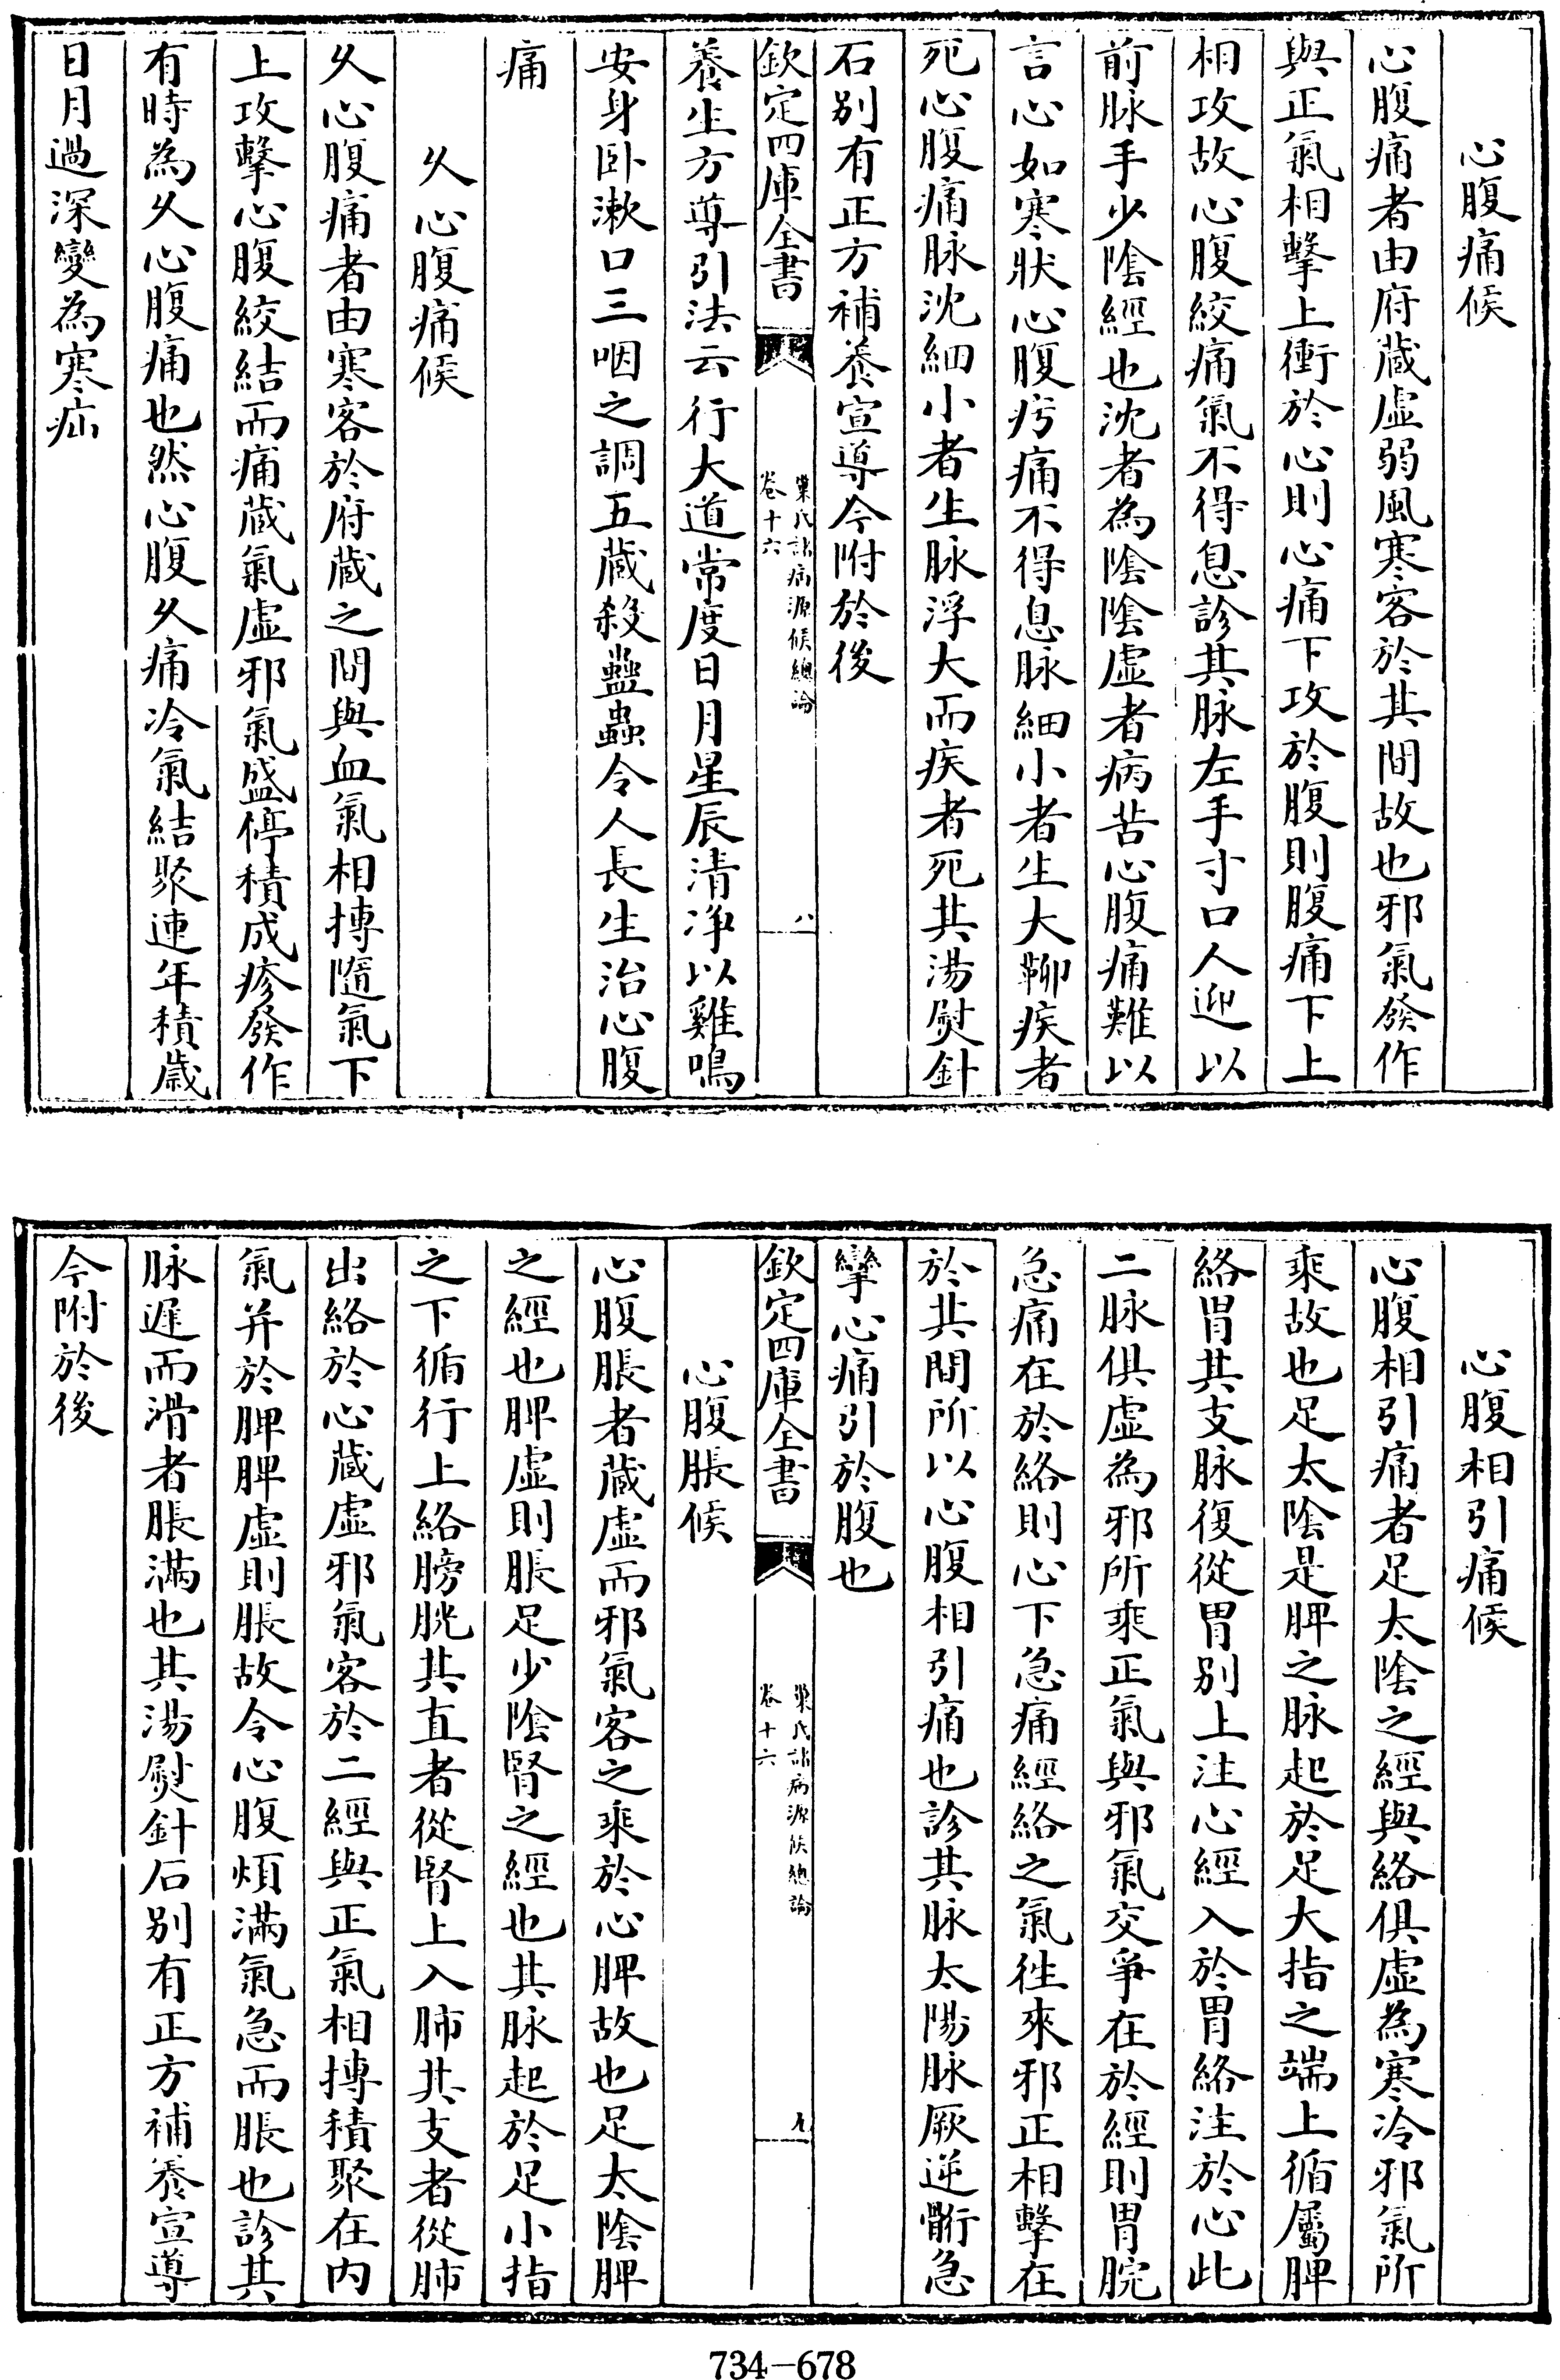 心腹痛候
心腹痛者由府蔵虚弱風寒客於其間故也邪氣發作
與正氣相擊上衝於心則心痛下攻於腹則腹痛下上
相攻故心腹絞痛氣不得息診其脉左手寸口人迎以
前脉手少陰經也沈者為陰陰虚者病苦心腹痛難以
言心如寒狀心腹㽲痛不得息脉細小者生大鞕疾者
死心腹痛脉沈細小者生脉浮大而疾者死其湯熨針
石别有正方補養宣導今附於後
欽定四庫全書
巢氏諸病源候總論
卷十六
八
養生方導引法云行大道常度日月星辰清净以雞鳴
安身卧漱口三咽之調五蔵殺蠱蟲令人長生治心腹
痛
乆心腹痛候
乆心腹痛者由寒客於府蔵之間與血氣相搏隨氣下
上攻擊心腹絞結而痛蔵氣虚邪氣盛停積成疹發作
有時為乆心腹痛也然心腹乆痛冷氣結聚連年積歲
日月過深變為寒疝
心腹相引痛候
心腹相引痛者足太陰之經與絡俱虚為寒冷邪氣所
乘故也足太陰是脾之脉起於足大指之端上循屬脾
絡胃其支脉復從胃别上注心經入於胃絡注於心此
二脉俱虚為邪所乘正氣與邪氣交爭在於經則胃脘
急痛在於絡則心下急痛經絡之氣往來邪正相擊在
於其間所以心腹相引痛也診其脉太陽脉厥逆䯒急
攣心痛引於腹也
欽定四庫全書
巢氏諸病源候總論
卷十六
九
心腹脹候
心腹脹者蔵虚而邪氣客之乘於心脾故也足太陰脾
之經也脾虚則脹足少陰腎之經也其脉起於足小指
之下循行上絡膀胱其直者從腎上入肺其支者從肺
出絡於心蔵虚邪氣客於二經與正氣相搏積聚在内
氣并於脾脾虚則脹故令心腹煩滿氣急而脹也診其
脉遲而滑者脹滿也其湯熨針石别有正方補養宣導
今附於後
734-678